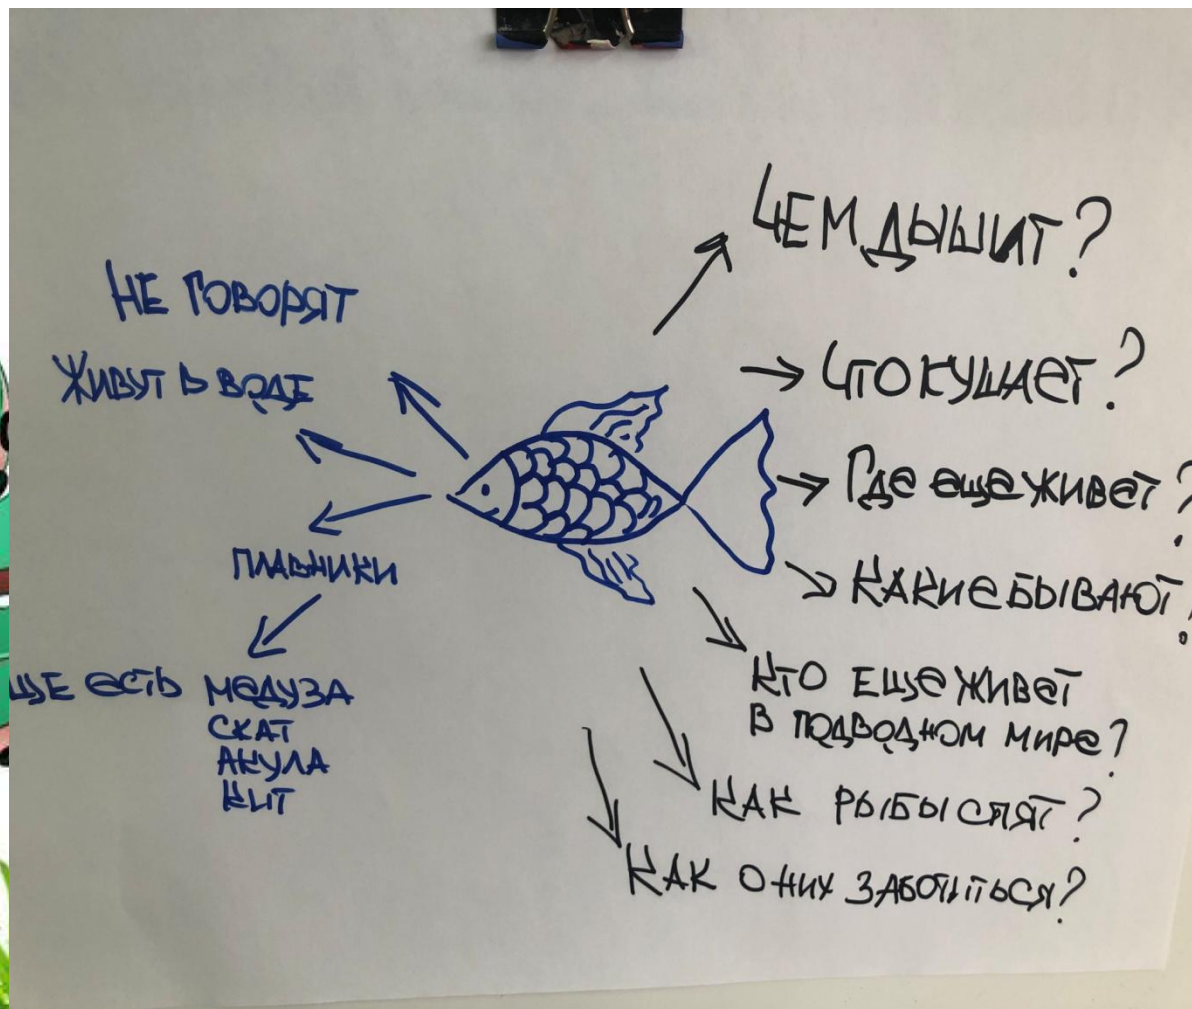 НЕ ГОВОРЯТ
ЖИВУТ В ВОДЕ
ПЛАВНИКИ
ЩЕ ЕСТЬ МЕДУЗА
СКАТ
АКУЛА
КИТ
ЧЕМ ДЫШИТ?
ЧТО КУШАЕТ?
ГДЕ ЕЩЕ ЖИВЕТ?
КАКИЕ БЫВАЮТ?
КТО ЕЩЕ ЖИВЕТ
В ПОДВОДНОМ МИРЕ?
КАК РЫБЫ СПЯТ?
КАК О НИХ ЗАБОТИТЬСЯ?